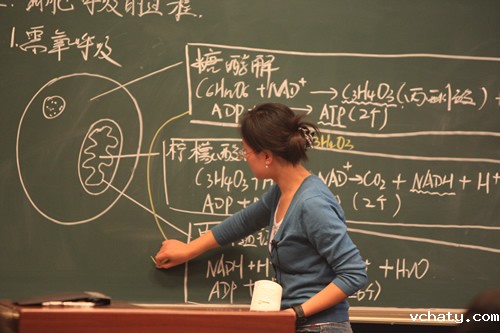 细胞呼吸的过程.
1.需氧呼吸
糖酵解
C6H12O6 + NAD+ → C3H4O3(丙酮酸)
ADP → ATP(2个)
3H4O3
柠檬酸
C3H4O3 + NAD+ → CO2 + NADH + H+
ADP + (2个)
NADH + H + H2O
ADP + 个)
vchaty.com